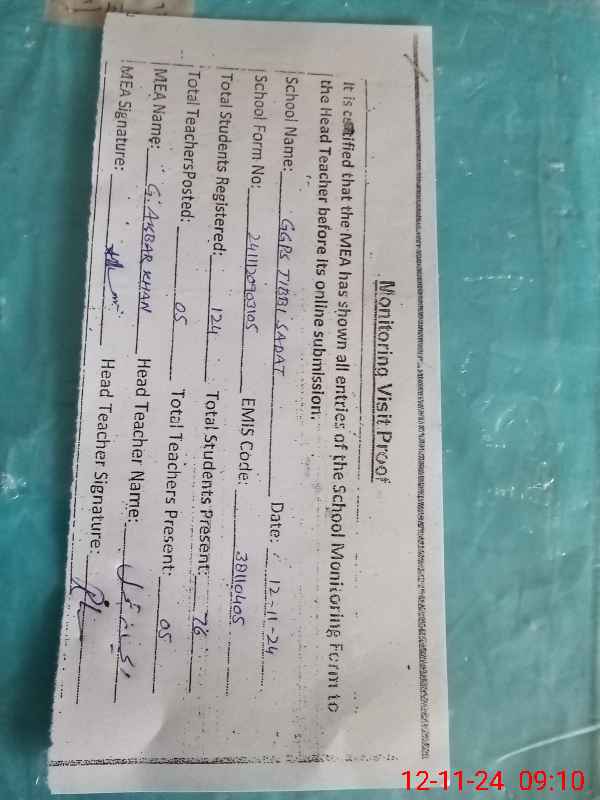 Monitoring Visit Proof
It is certified that the MEA has shown all entries of the School Monitoring Form to
the Head Teacher before its online submission.
School Name: GGPS TIBBI SADAT Date: 12-11-24
School Form No: 2411120903105 EMIS Code: 38110405
Total Students Registered: 124 Total Students Present: 76
Total TeachersPosted: 05 Total Teachers Present: 05
MEA Name: G. AKBAR KHAN Head Teacher Name:
MEA Signature: Head Teacher Signature:
12-11-24 09:10